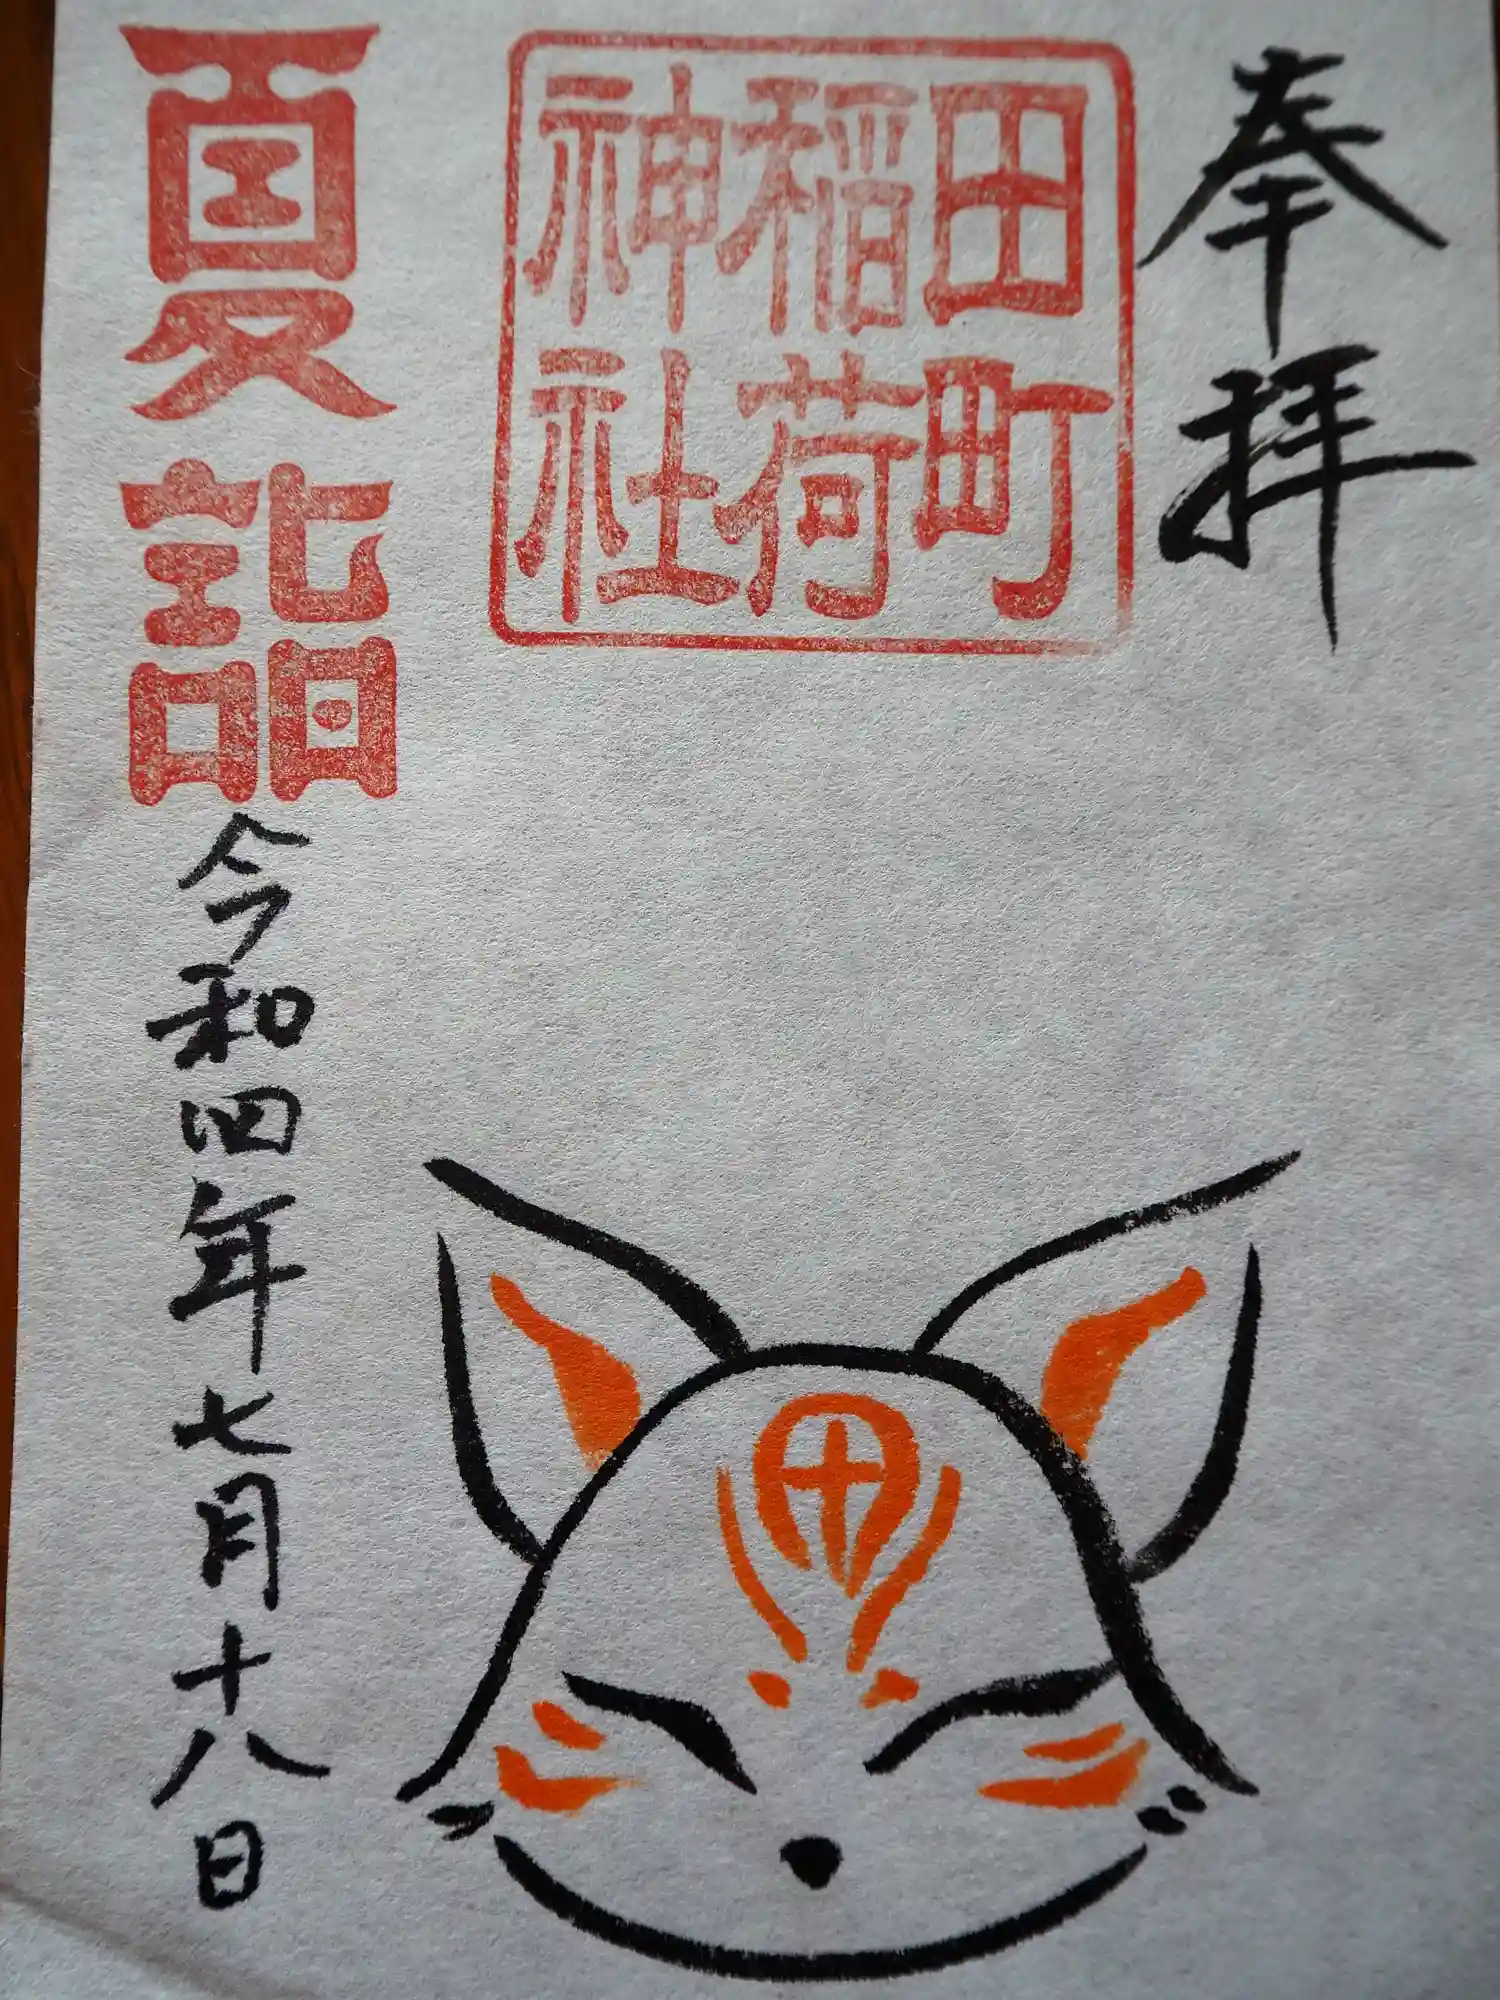 奉拝
田町
稲荷
神社
夏詣
令和四年七月十八日